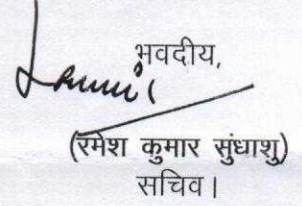 भवदीय,
(रमेश कुमार सुंधाशु)
सचिव।